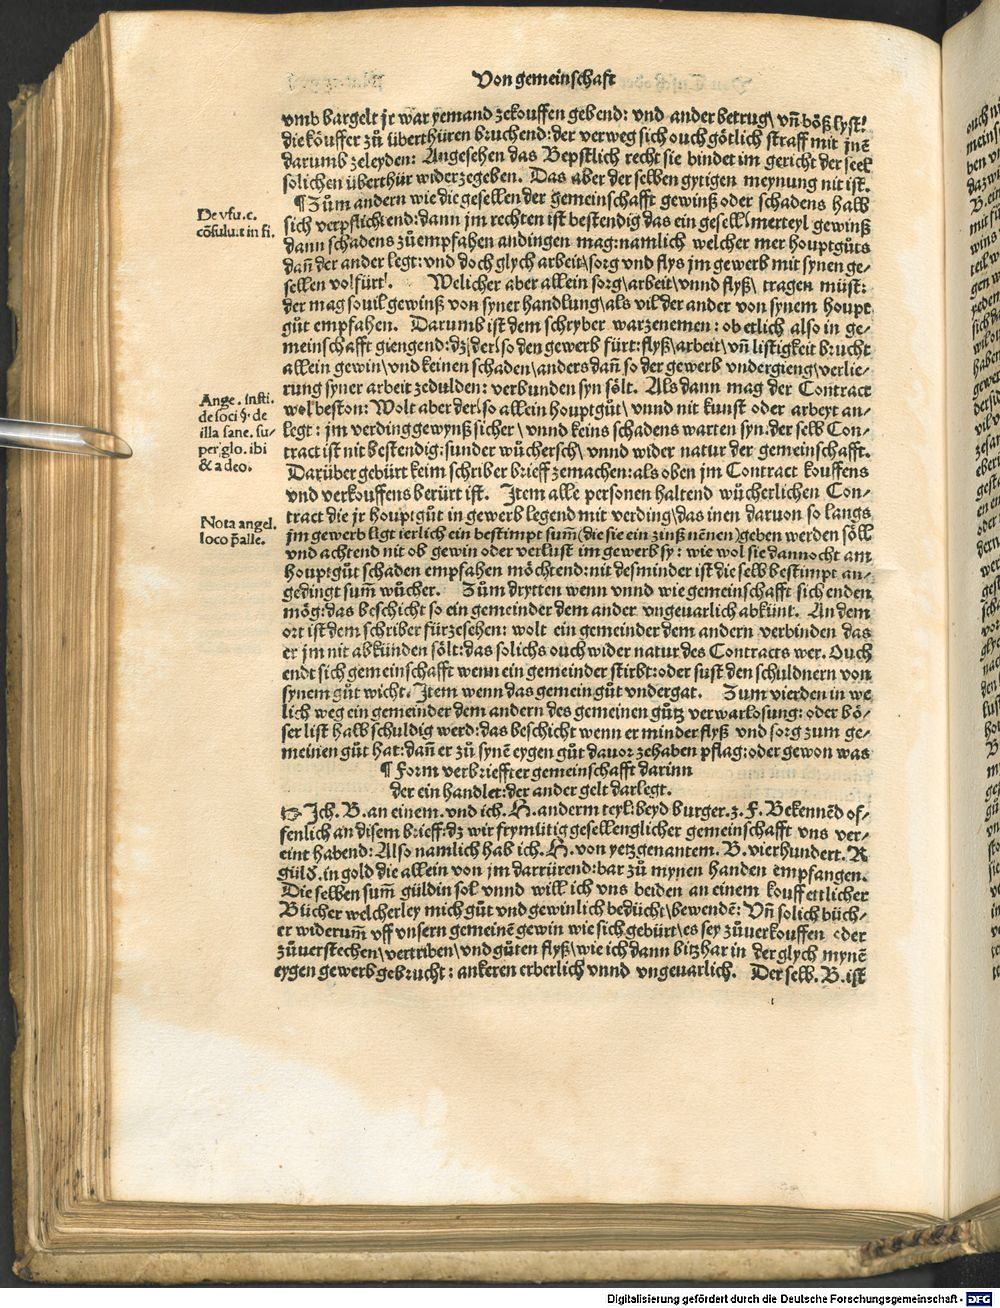 Von gemeinschaft
vmb bargelt jr war yemand zekouffen gebend: vnd ander betrug\ vñ bȯ̈ß lyst!
die köuffer zů überthüren bruchend: der verweg sich ouch götlich straff mit jnē
darumb zeleyden: Angesehen das Bepstlich recht sie bindet im gericht der seel
solichen überthür widerzegeben. Das aber der selben gytigen meynung nit ist.
¶ Zům andern wie die gesellen der gemeinschafft gewinß oder schadens halb
sich verpflichtend: dann jm rechten ist bestendig das ein gesell\ merteyl gewinß
dann schadens zů empfahen andingen mag: namlich welcher mer houptgůts
dañ der ander legt: vnd doch glych arbeit\ sorg vnd flys jm gewerb mit synen ge⸗
sellen volfürt!. Welicher aber allein sorg\ arbeit\ vnnd flyß\ tragen müst:
der mag souil gewinß von syner handlung\ als vil der ander von synem houpt
gůt empfahen. Darumb ist dem schryber warzenemen: ob etlich also in ge⸗
meinschafft giengend: dz\ der\ so den gewerb fürt: flyß\ arbeit\ vñ listigkeit brucht
allein gewin\ vnd keinen schaden\ anders dañ so der gewerb vndergieng\ verlie⸗
rung syner arbeit zedulden: verbunden syn sölt. Als dann mag der Contract
wol beston: Wolt aber der\ so allein houptgůt\ vnnd nit kunst oder arbeyt an⸗
legt: jm verding gewynß sicher\ vnnd keins schadens warten syn: der selb Con⸗
tract ist nit bestendig: sunder wüchersch\ vnnd wider natur der gemeinschafft.
Darüber gebürt keim schriber brieff zemachen: als oben jm Contract kouffens
vnd verkouffens berürt ist. Item alle personen haltend wücherlichen Con⸗
tract die jr houptgůt in gewerb legend mit verding\ das inen daruon so langs
jm gewerb ligt ierlich ein bestimpt sum̃ (die sie ein zinß nēnen) geben werden söll
vnd achtend nit ob gewin oder verlust im gewerb sy: wie wol sie dannocht am
houptgůt schaden empfahen möchtend: nit desminder ist die selb bestimpt an⸗
gedingt sum̃ wücher. Zům drytten wenn vnnd wie gemeinschafft sich enden
mög: das beschicht so ein gemeinder dem ander vngeuarlich abkünt. An dem
ort ist dem schriber fürzesehen: wolt ein gemeinder dem andern verbinden das
er jm nit abkünden sölt: das solichs ouch wider natur des Contracts wer. Ouch
endt sich gemeinschafft wenn ein gemeinder stirbt: oder sust den schuldnern von
synem gůt wicht. Item wenn das gemein gůt vndergat. Zum vierden in we
lich weg ein gemeinder dem andern des gemeinen gůtz verwarlosung: oder bö⸗
ser list halb schuldig werd: das beschicht wenn er minder flyß vnd sorg zum ge⸗
meinen gůt hat: dañ er zů synē eygen gůt dauor zehaben pflag: oder gewon was
¶ Form verbrieffter gemeinschafft darinn
der ein handlet: der ander gelt darlegt.
☞ Ich. B. an einem. vnd ich. H. anderm teyl: beyd burger. z. F. Bekennēd of⸗
fenlich an disem brieff: dz wir frymlitig gesellenglicher gemeinschafft vns ver⸗
eint habend: Also namlich hab ich. H. von yetz genantem. B. vierhundert. R
güld̃. in gold die allein von jm darrürend: bar zů mynen handen empfangen.
Die selben sum̃ güldin sol vnnd will ich vns beiden an einem kouff ettlicher
Bücher welcherley mich gůt vnd gewinlich bedücht\ bewendē: Vñ solich büch⸗
er widerum̃ vff vnsern gemeinē gewin wie sich gebürt\ es sey zů verkouffen oder
zů verstechen\ vertriben\ vnd gůten flyß\ wie ich dann bitz har in der glych mynē
eygen gewerb gebrucht: ankeren erberlich vnnd vngeuarlich. Der selb. B. ist
De vsu. c.
cōsulu. t in fi.
Ange. insti.
de soci §. de
illa sane. su⸗
per glo. ibi
& adeo.
Nota angel.
loco p̄alle.
Digitalisierung gefördert durch die Deutsche Forschungsgemeinschaft - DFG